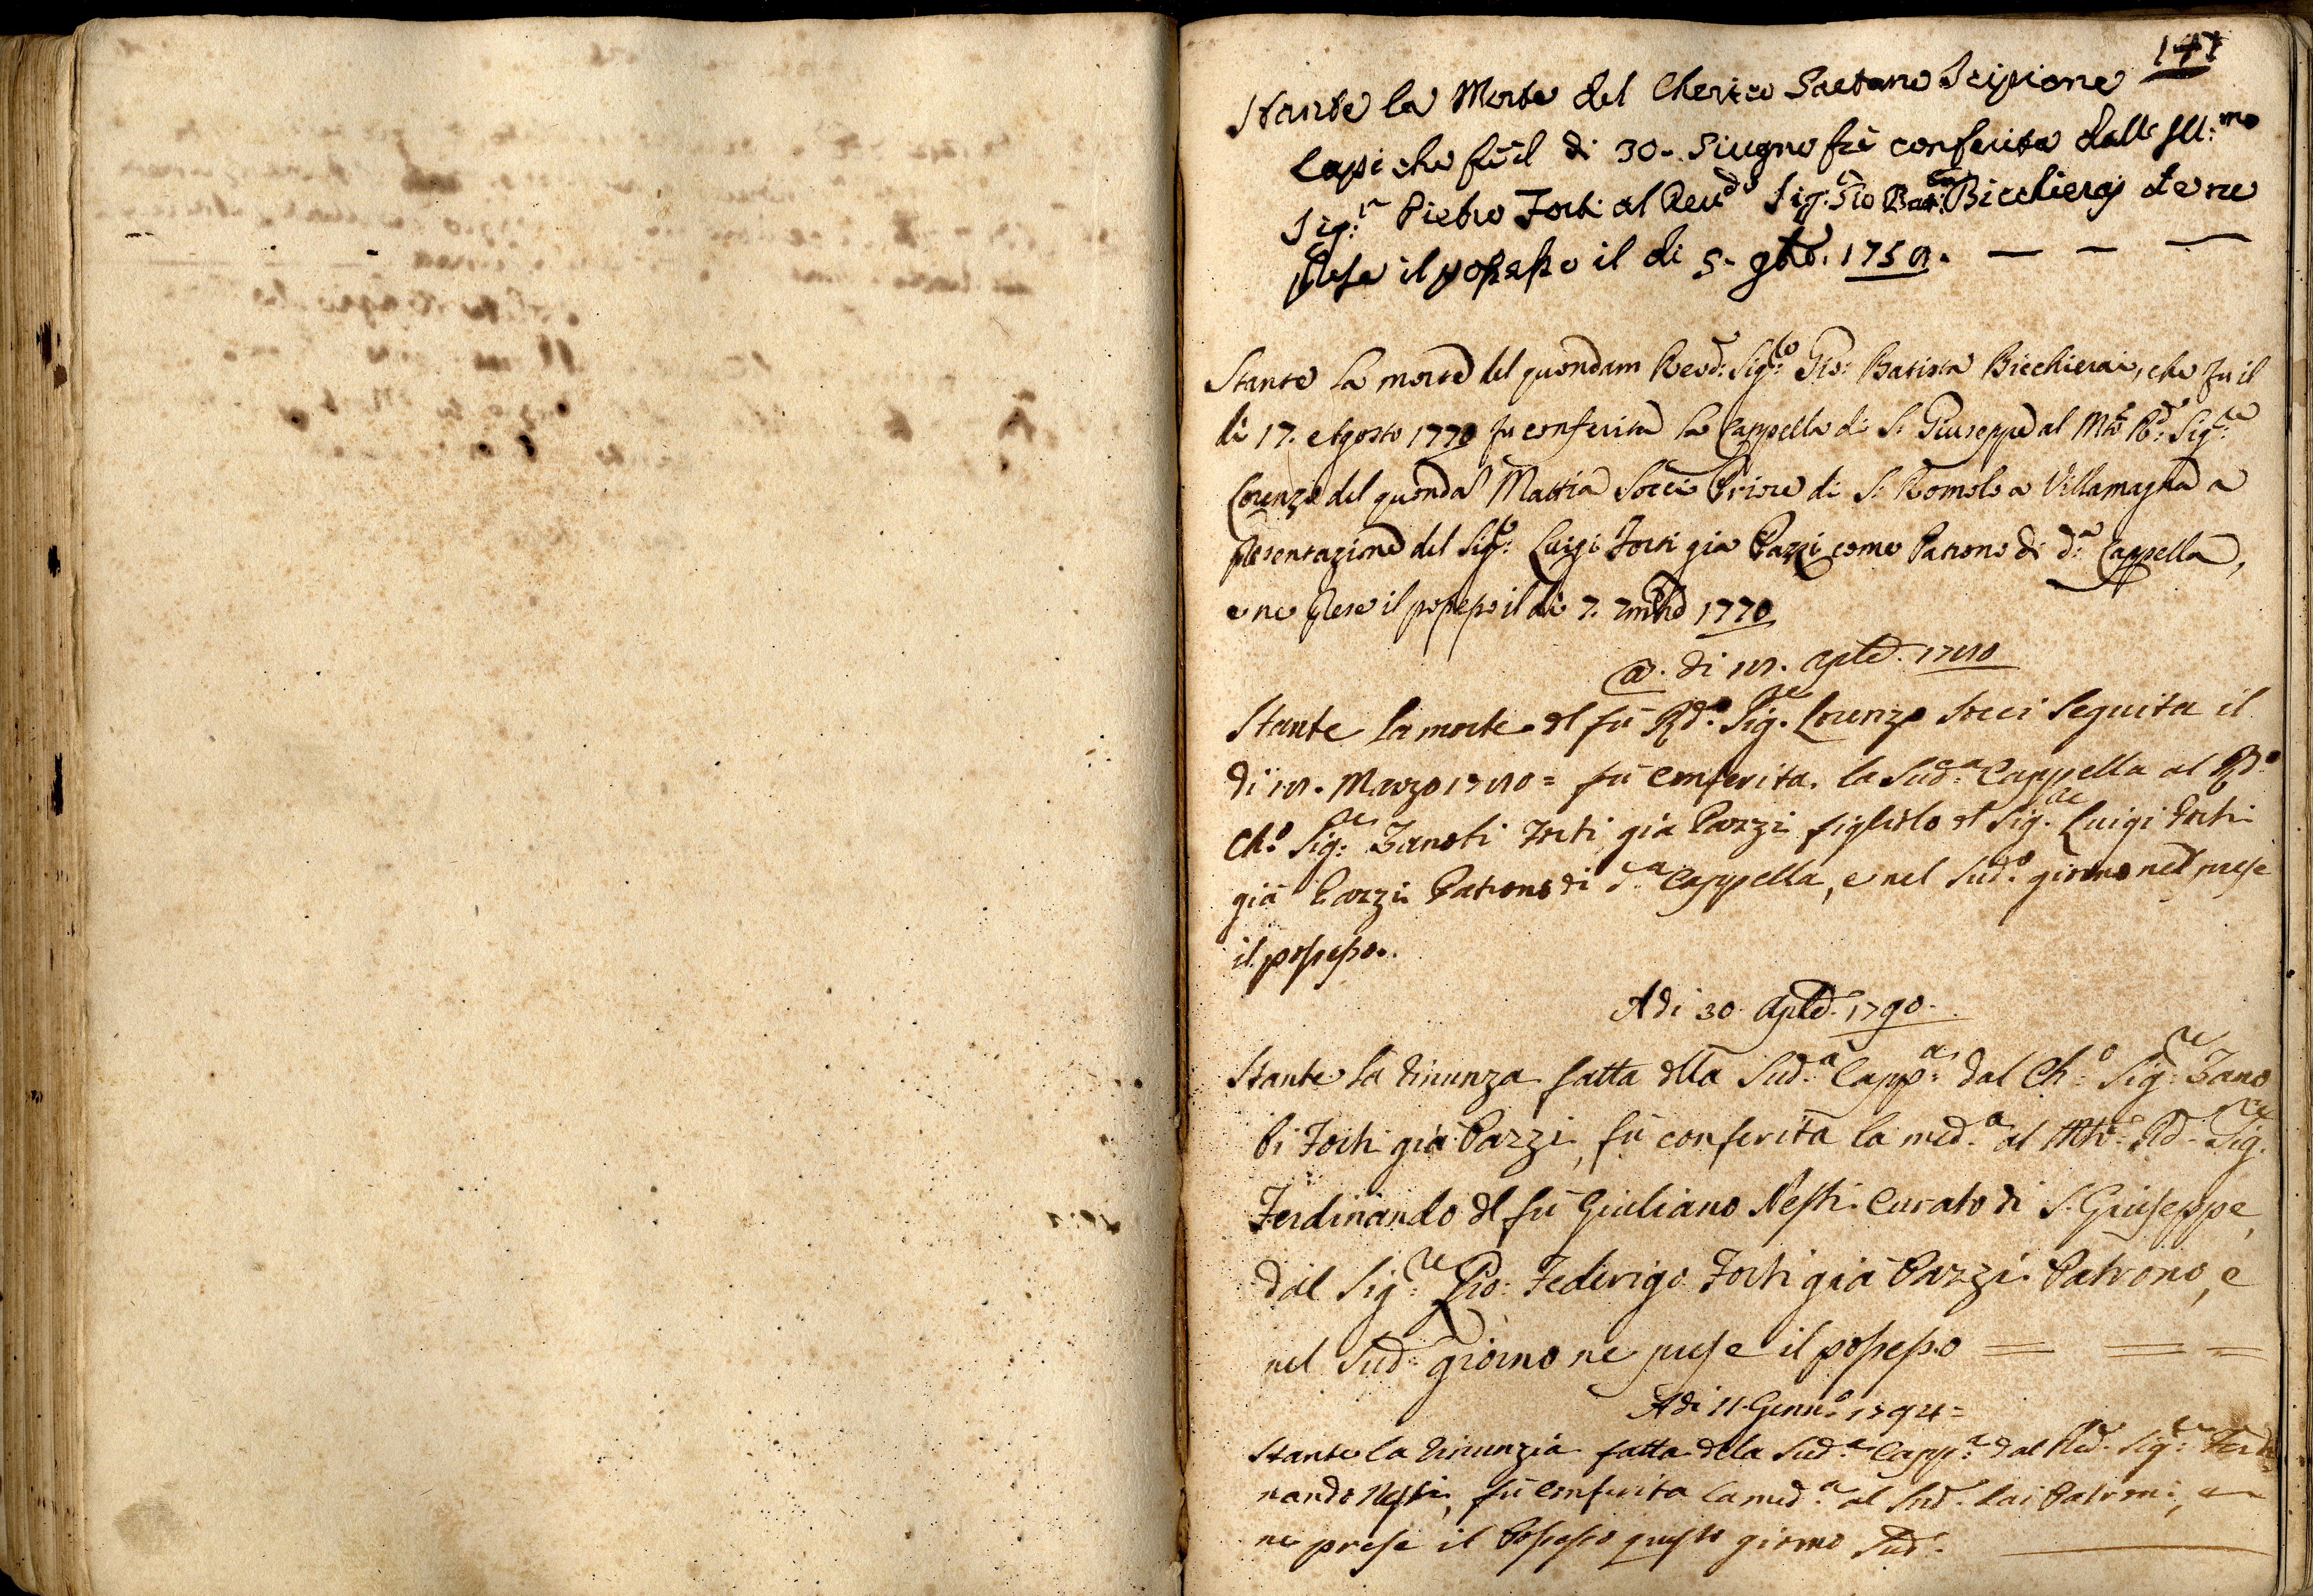 141
Stante la Morte del Cherico Gaetano Scipione
Lapi che fù il di 30. Giugno fù conferita dall Ill:mo
Sig:r Pietro Forti al Reud.o Sig:r Gio Bat: Bicchieraj che ne
prese il possesso il di 5. 9bre. 1759.
Stante la morte del quondam Revd: Sig:re Gio: Batista Bicchierai, che fu il
di 17. Agosto 1770 fu conferita la Cappella di S. Giuseppe al Mto Rd: Sig:re
Lorenzo del quonda Mattia Socci Priore di S: Romolo a Villamagna a
presentazione del Sigre: Luigi Forti già Pazzi come Patrono di d:a Cappella,
e ne prese il possesso il di 7. 7mbre 1770
A. di 18. aple. 1780
Stante la morte dl fù Rd.o Sig.re Lorenzo Socci seguita il
di 18. Marzo 1780 = fù conferita la Sud.a Cappella al Rd.o
Ch.o Sig:re Zanobi Forti già Pazzi figliolo dl Sig.re Luigi Forti
già Pazzi Patrono di d.a Cappella, e nel Sud.o giorno ne prese
il possesso.
Adi 30 Aple. 1790.
Stante la rinunza fatta dlla Sud.a Capp:a dal Ch:o Sig:re Zano
bi Forti già Pazzi, fù conferita la med.a al Mto: Rd. Sig.re
Ferdinando dl fù Giuliano Nesti Curato di S. Giuseppe,
dal Sig:re Gio: Federigo Forti già Pazzi Patrono, e
nel Sud: giorno ne prese il possesso
Adi 11 Genn.o 1794 =
Stante la rinunzia fatta della Sud.a Capp:a dal Rd. Sig:re Ferdi
nando Nesti, fù conferita la med.a al Sud. dai Patroni, e
ne prese il Possesso questo giorno Sud.